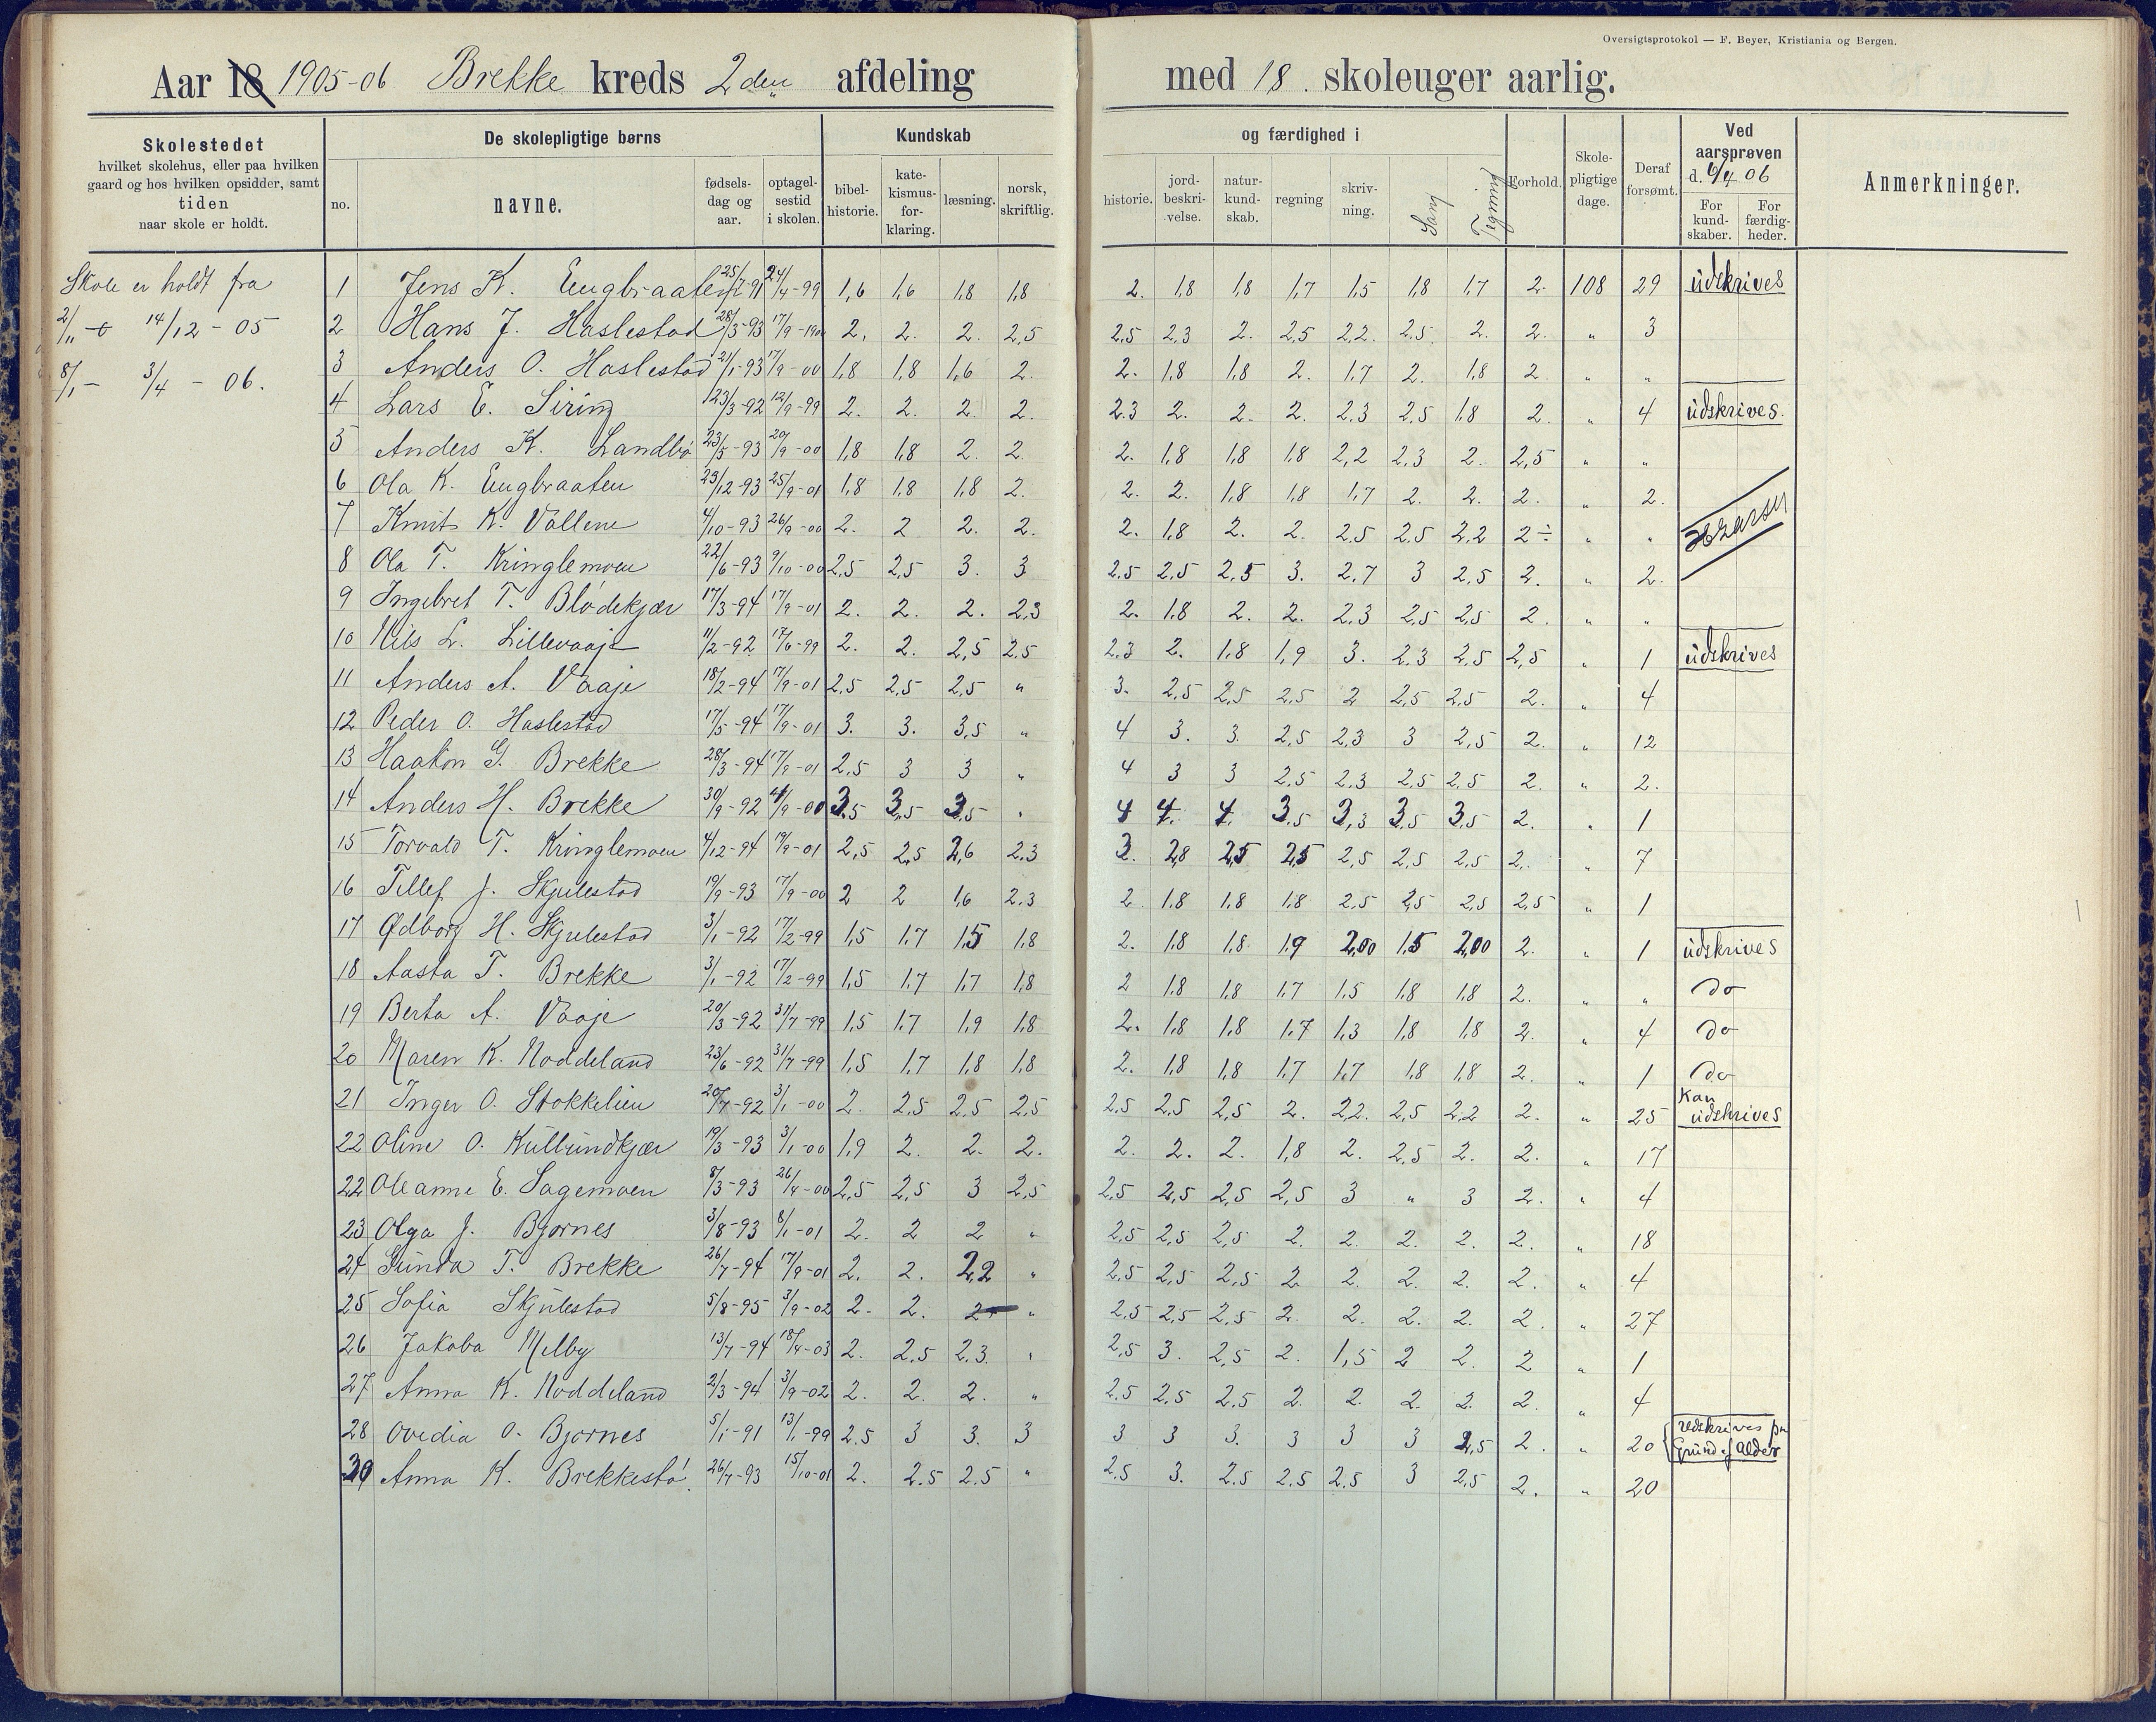 Oversigtsprotokol — F. Beyer, Kristiania og Bergen.
Aar 18 1905-06 Brekke kreds 2den afdeling med 18. skoleuger aarlig.
Skolestedet
hvilket skolehus, eller paa hvilken
gaard og hos hvilken opsidder, samt
tiden
naar skole er holdt.
De skolepligtige børns
no. navne. fødsels-dag og aar. optagel-sestid i skolen.
Kundskab og færdighed i
bibel-historie. kate-kismus-for-klaring. læsning. norsk, skriftlig. historie. jord-beskri-velse. natur-kund-skab. regning skriv-ning. Sang Tegning
Forhold. Skole-pligtige dage. Deraf forsømt.
Ved aarsprøven d. 6/4 06
For kund-skaber. For færdig-heder.
Anmerkninger.
Skole er holdt fra
2/11 - 14/12 - 05
8/1 - 3/4 - 06.
1 Jens K. Engbraaten 25/7-91 24/4-99 1,6 1,6 1,8 1,8 2. 1,8 1,8 1,7 1,5 1,8 1,7 2. 108 29 udskrives
2 Hans J. Haslestad 28/3-93 17/9-1900 2. 2. 2. 2,5 2,5 2,3 2. 2,5 2,2. 2,5. 2. 2. " 3
3 Anders O. Haslestad 21/1-93 17/9-00 1,8 1,8 1,6 2. 2. 1,8 1,8 2. 1,7 2. 1,8 2. " "
4 Lars E. Siring 23/3-92 12/9-99 2. 2. 2. 2. 2.3 2. 2. 2. 2.3 2,5 1,8 2. " 4 udskrives.
5 Anders K. Landbø 23/5-93 20/9-00 1,8 1,8 2. 2. 2. 1,8 1,8 1,8 2,2 2,3 2. 2,5 " "
6 Ola K. Engbraaten 23/12-93 25/9-01 1,8 1,8 1,8 2. 2. 2. 1,8 1,8 1,7 2. 2. 2. " 2.
7 Knut K. Vallene 4/10-93 26/9-00 2. 2 2. 2. 2. 1,8 2. 2. 2,5 2,5 2,2 2÷ " "
8 Ola T. Kringlemoen 22/6-93 9/10-00 2,5 2,5 3. 3 2,5 2,5 2,5 3. 2,7 3 2,5 2. " 2.
9 Ingebret T. Blödekjær 17/3-94 17/9-01 2. 2. 2. 2,3 2. 1,8 2. 2. 2.3 2,5 2,5 2. " "
10 Nils L. Lillevaaje 11/2-92 17/6-99 2. 2. 2,5 2.5 2.3 2. 1,8 1,9 3. 2.3 2,5 2,5 " 1 udskrives
11 Anders A. Vaaje 18/2-94 17/9-01 2,5 2,5 2,5 " 3. 2,5 2,5 2,5 2 2,5 2,5 2. " 4
12 Peder O. Haslestad 17/5-94 17/9-01 3. 3. 3,5 " 4 3. 3. 2,5 2,3 3 2,5 2. " 12
13 Haakon G. Brekke 28/3-94 17/9-01 2,5 3 3 " 4 3 3 2,5 2.3 2,5 2,5 2. " 2.
14 Anders H. Brekke 30/9-92 4/9-00 3.5 3,5 3,5 " 4 4. 4. 3,5 3,3 3,5 3,5 2. " 1
15 Torvald T. Kringlemoen 4/12-94 19/9-01 2,5 2,5 2,6 2.3 3. 2,8 2,5 2,5 2,5 2,5 2,5 2. " 7
16 Tellef J. Skjulestad 19/9-93 17/9-00 2 2 1,6 2.3 2 1,8 1,8 1,8 2,5 2,5 2,5 2,5 " 1
17 Ødborg H. Skjulestad 3/1-92 17/2-99 1,5 1,7 1,5 1,8 2. 1,8 1,8 1,9 2,00 1,5 2,00 2. " 1 udskrives
18 Aasta T. Brekke 3/1-92 17/2-99 1,5 1,7 1,7 1,8 2 1,8 1,8 1,7 1,5 1,8 1,8 2. " " do
19 Berta A. Vaaje 20/3-92 31/7-99 1,5 1,7 1,9 1,8 2. 1,8 1,8 1,7 1,3 1,8 1,8 2. " 4 do
20 Maren K. Noddeland 23/6-92 31/7-99 1,5 1,7 1,8 1,8 2. 1,8 1,8 1,7 1,7 1,8 1,8 2. " 1 do
21 Inger O. Stokkelien 20/7-92 3/1-00 2. 2,5 2,5 2,5 2,5 2,5 2,5 2. 2,2. 2,5 2,2 2. " 25 Kan udskrives
22 Oline O. Kullundkjær 19/3-93 3/1-00 1,9 2. 2. 2. 2. 2. 2. 1,8 2. 2,5 2. 2. " 17
22 Oleanne E. Sagemoen 8/3-93 26/4-00 2,5 2,5 3 2,5 2,5 2,5 2,5 2,5 3 " 3 2. " 4
23 Olga J. Bjørnes 3/8-93 8/1-01 2. 2 2 " 2,5 2,5 2,5 2. 2. 2. 2. 2. " 18
24 Gunda T. Brekke 26/7-94 17/9-01 2. 2. 2,2 " 2,5 2,5 2,5 2 2. 2. 2. 2. " 4
25 Sofia Skjulestad 5/8-95 3/9-02 2. 2. 2 " 2,5 2,5 2,5 2. 2. 2. 2. 2. " 27
26 Jakoba Melby 13/7-94 18/4-03 2. 2,5 2,3. " 2,5 3. 2,5 2. 1,5 2 2. 2 " 1
27 Anna K. Noddeland 2/3-94 3/9-02 2. 2. 2. " 2,5 2,5 2,5 2. 2. 2. 2. 2. " 4
28 Ovedia O. Bjørnes 5/1-91 13/1-99 2.5 3 3. 3 3 3 3. 3 3 3 2,5 2. " 20 udskrives paa Grund af Alder
29 Anna K. Brekkestø 26/7-93 15/10-01 2. 2.5 2.5 " 2.5 3. 2.5 2,5 2,5 3 2,5 2. " 20